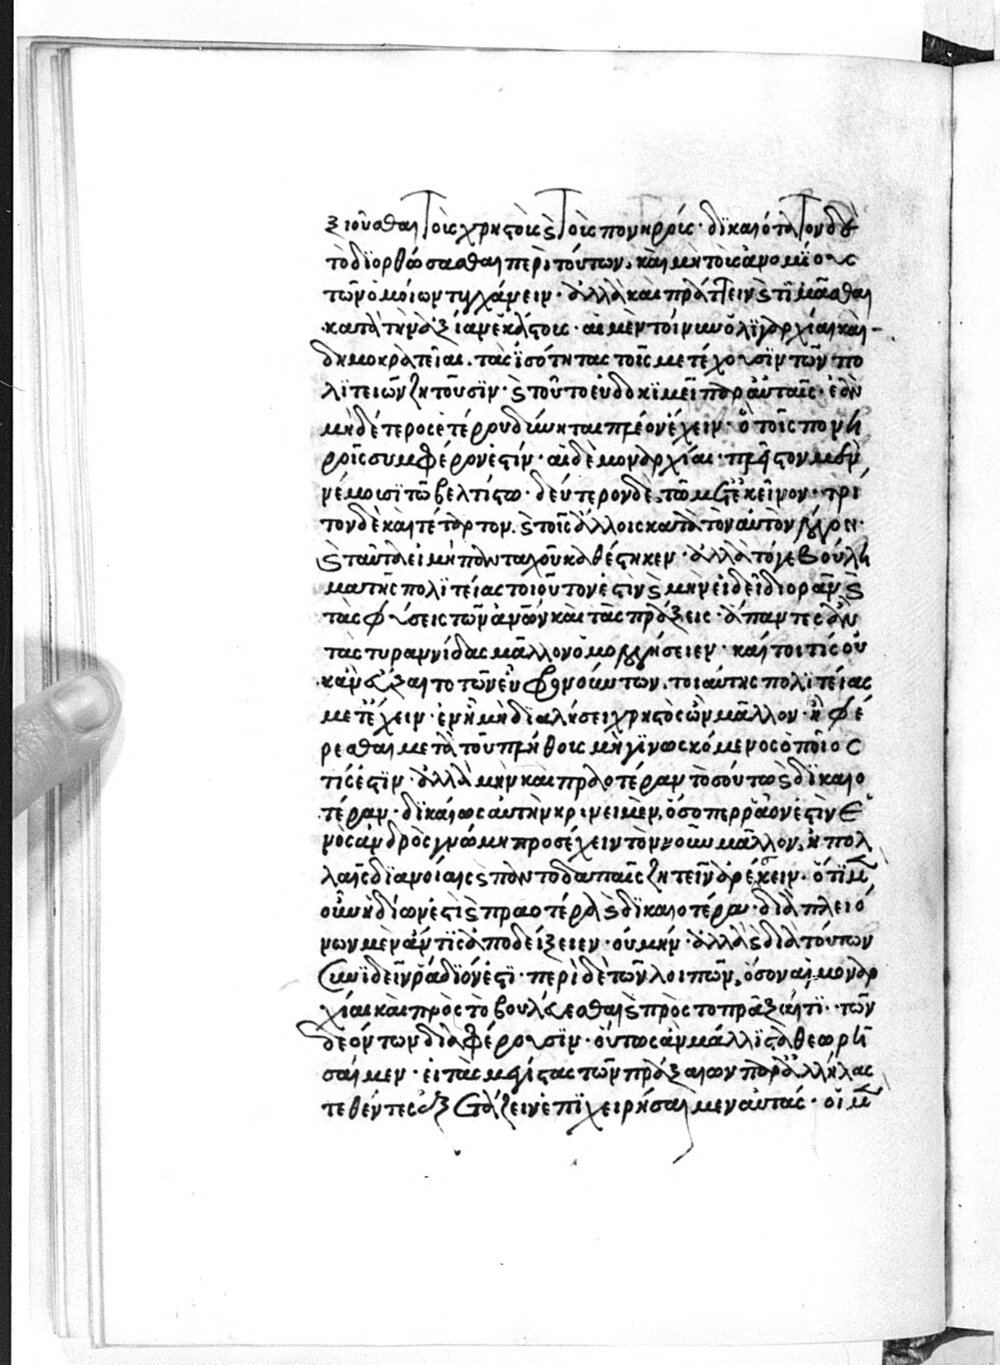 ξιοῦσθαι τοῖς χρηστοῖς καὶ τοῖς πονηροῖς· δικαιότατον δὲ
τὸ διορθώσασθαι περὶ τούτων, καὶ μὴ τοὺς ἀνομοίους
τῶν ὁμοίων τυγχάνειν· ἀλλὰ καὶ πράττειν καὶ τιμᾶσθαι
κατὰ τὴν ἀξίαν ἑκάστους· αἱ μὲν τοίνυν ὀλιγαρχίαι καὶ
δημοκρατεῖαι, τὰς ἰσότητας τοῖς μετέχουσιν τῶν πο
λιτειῶν ζητοῦσιν· καὶ τοῦτο εὐδοκιμεῖ παρ' αὐταῖς· ἐὰν
μηδέτερος ἑτέρου δύνηται πλέον ἔχειν· ὃ τοῖς πονη
ροῖς συμφέρον ἐστίν· αἱ δὲ μοναρχίαι· πλεῖστον μὲν
νέμουσι τῷ βελτίστῳ· δεύτερον δὲ, τῷ μετ' ἐκεῖνον· τρί
τον δὲ καὶ τέταρτον, καὶ τοῖς ἄλλοις κατὰ τὸν αὐτὸν λόγον·
καὶ ταῦτα εἰ μὴ πανταχοῦ καθέστηκεν· ἀλλὰ τό γε βούλη
μα τῆς πολιτείας τοιοῦτον ἐστίν καὶ μὴν εἰ δεῖ διορᾶν καὶ
τὰς φύσεις τῶν ἀνθρώπων καὶ τὰς πράξεις· ἅπαντες ἂν
τὰς τυραννίδας μᾶλλον ὁμολογήσειεν· καί τοι τίς οὐ
κἂν δέξαιτο τῶν εὖ φρονούντων, τοιαύτης πολιτείας
μετέχειν· ἐν ᾗ μὴ διαλήσει χρηστὸς ὢν μᾶλλον· ἢ φέ
ρεσθαι μετὰ τοῦ πλήθους μὴ γινωσκόμενος ὁποῖος
τίς ἐστιν· ἀλλὰ μὴν καὶ πραοτέραν τοσούτῳ καὶ δικαιο
τέραν· δικαίως αὐτὴν κρίνειμεν, ὅσο περ ῥᾷον ἐστὶν ἑ
νὸς ἀνδρὸς γνώμῃ προσέχειν τὸν νοῦν μᾶλλον, ἢ πολ
λαῖς διανοίαις καὶ παντοδαπαῖς ζητεῖν ἀρέσκειν· ὅτι μὲν
οὖν ἡδίων ἐστὶ καὶ πραοτέρα καὶ δικαιοτέρα· διὰ πλειό
νων μὲν ἄν τις ἀποδείξειεν· οὐ μὴν· ἀλλὰ καὶ διὰ τούτων
συνιδεῖν ῥάδιόν ἐστι· περὶ δὲ τῶν λοιπῶν, ὅσον αἱ μοναρ
χίαι καὶ πρὸς τὸ βουλεύεσθαι καὶ πρὸς τὸ πρᾶξαί τι· τῶν
δεόντων διαφέρουσιν· οὕτως ἂν μάλλιστα θεωρή
σαιμεν· εἰ τὰς μεγίστας τῶν πράξαιων παρ' ἀλλήλας
τεθέντες ἐξετάζειν ἐπιχειρήσαιμεν αὐτάς· οἱ μὲν